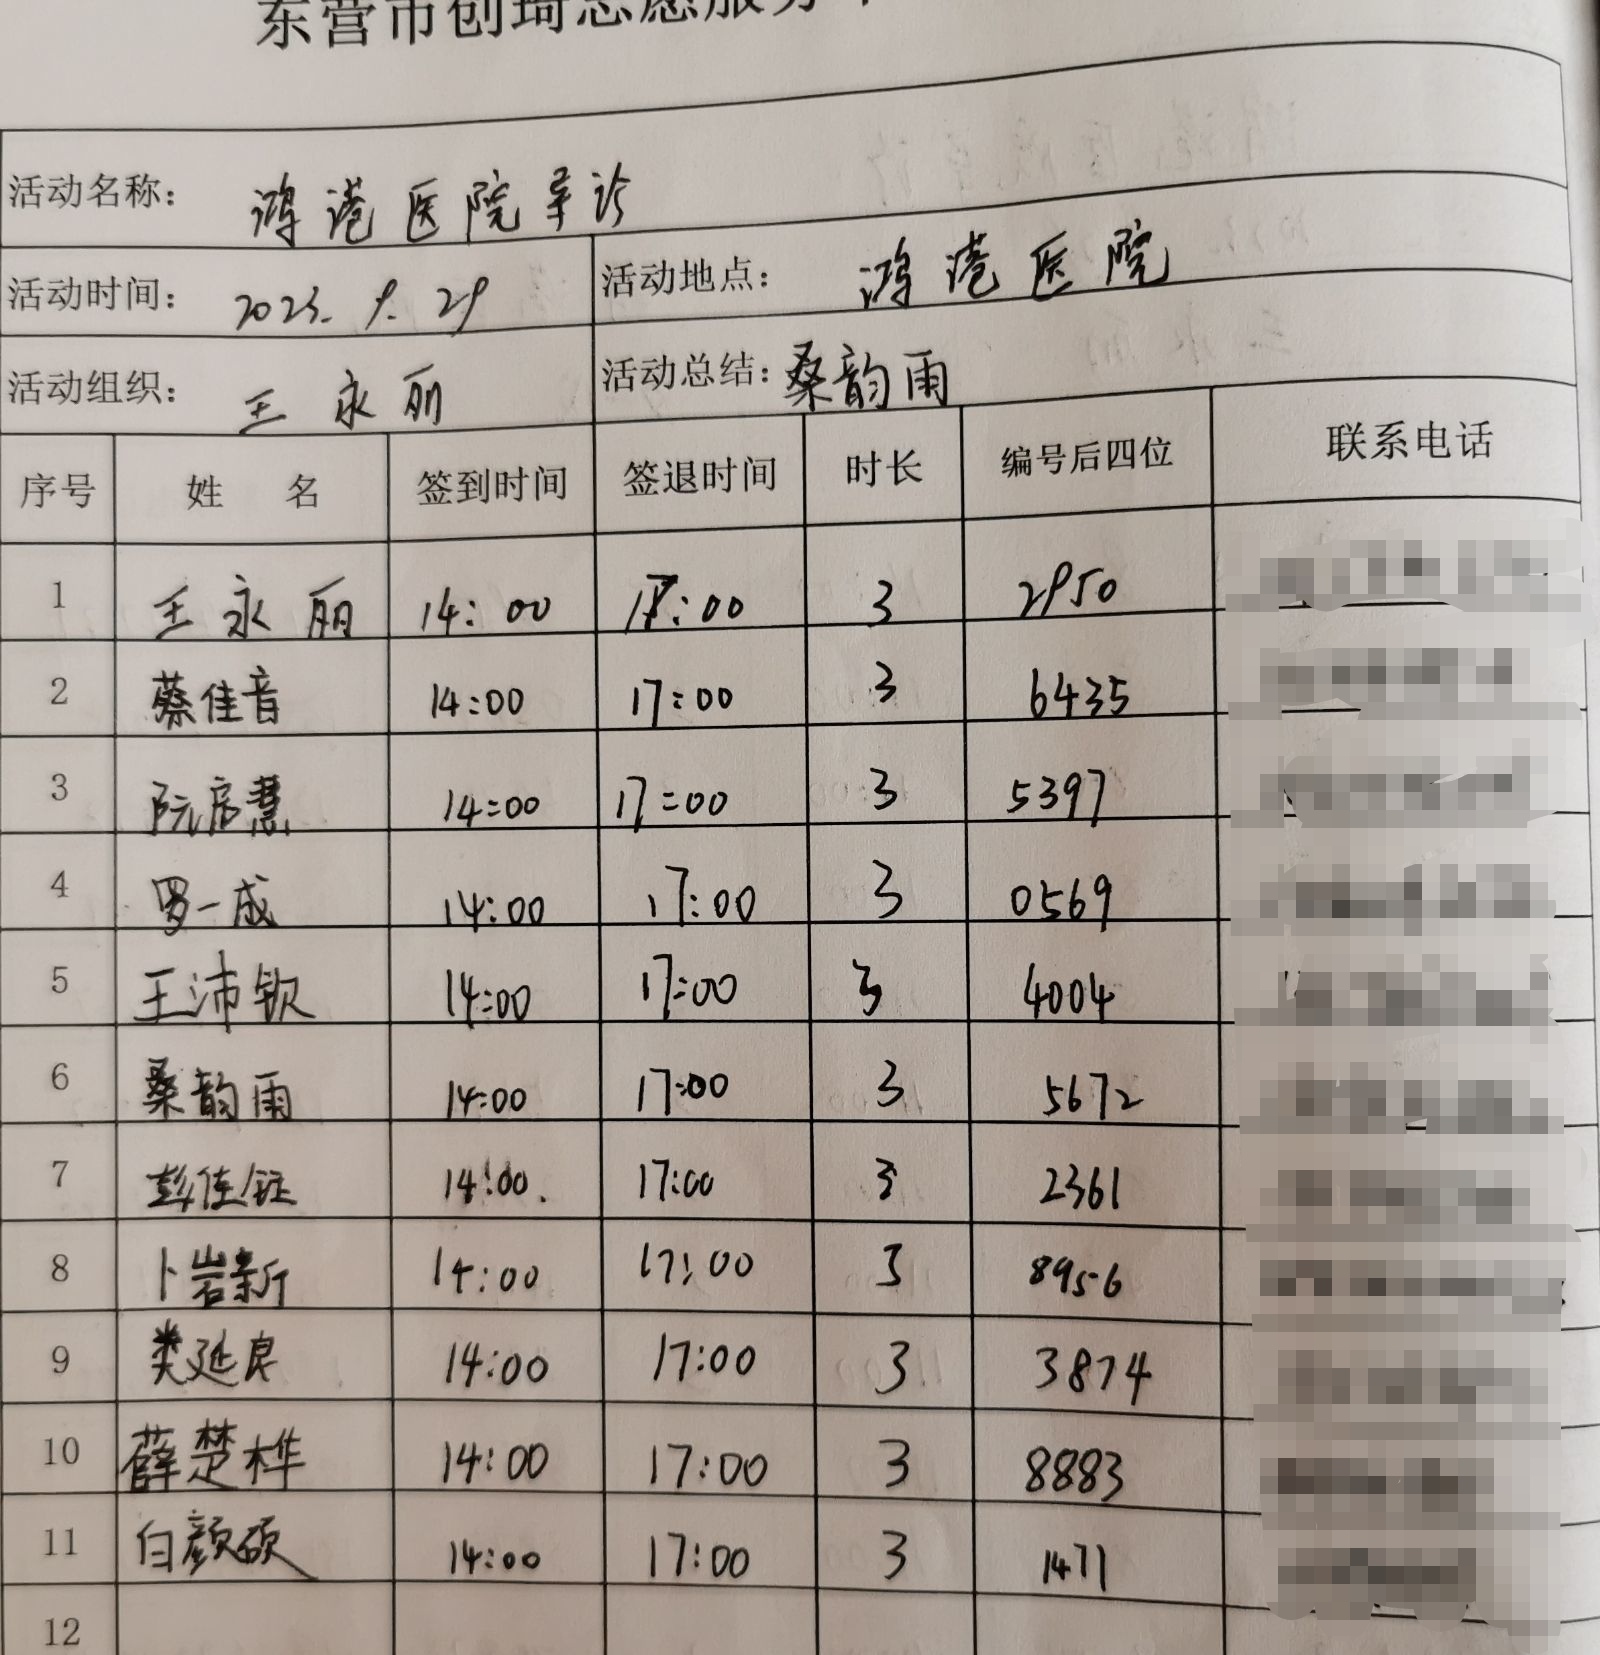 东营市创琦志愿服务
活动名称： 鸿港医院导诊
活动时间： 2023.9.29 活动地点： 鸿港医院
活动组织： 王永丽 活动总结：桑韵雨
序号 姓 名 签到时间 签退时间 时长 编号后四位 联系电话
1 王永丽 14:00 17:00 3 2950
2 蔡佳音 14:00 17:00 3 6435
3 阮启慧 14:00 17:00 3 5397
4 罗一成 14:00 17:00 3 0569
5 王沛钦 14:00 17:00 3 4004
6 桑韵雨 14:00 17:00 3 5672
7 彭佳钰 14:00. 17:00 3 2361
8 卜岩新 14:00 17:00 3 8956
9 类延良 14:00 17:00 3 3874
10 薛楚桦 14:00 17:00 3 8883
11 白颜硕 14:00 17:00 3 1471
12